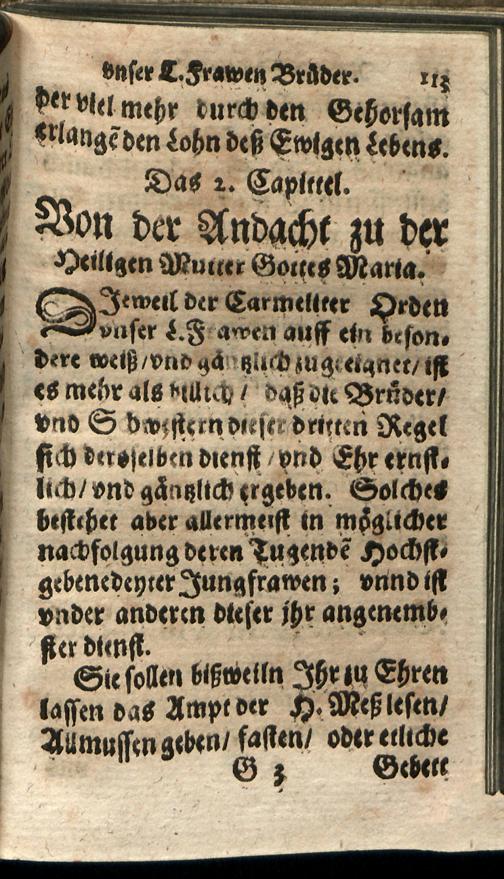 vnser L. Frawen Brüder. 113
der viel mehr durch den Gehorsam
erlangẽ den Lohn deß Ewigen Lebens.
Das 2. Capittel.
Von der Andacht zu der
Heiligen Mutter Gottes Maria.
DJeweil der Carmeliter Orden
vnser L. Frawen auff ein beson-
dere weiß / vnd gäntzlich zugeeignet / ist
es mehr als billich / daß die Brüder /
vnd Schwestern dieser dritten Regel
sich derselben dienst / vnd Ehr ernst-
lich / vnd gäntzlich ergeben. Solches
bestehet aber allermeist in möglicher
nachfolgung deren Tugendẽ Hochst-
gebenedeyter Jungfrawen; vnnd ist
vnder anderen dieser jhr angenemb-
ster dienst.
Sie sollen bißweiln Jhr zu Ehren
lassen das Ampt der H. Meß lesen /
Allmussen geben / fasten / oder etliche
G 3 Gebett